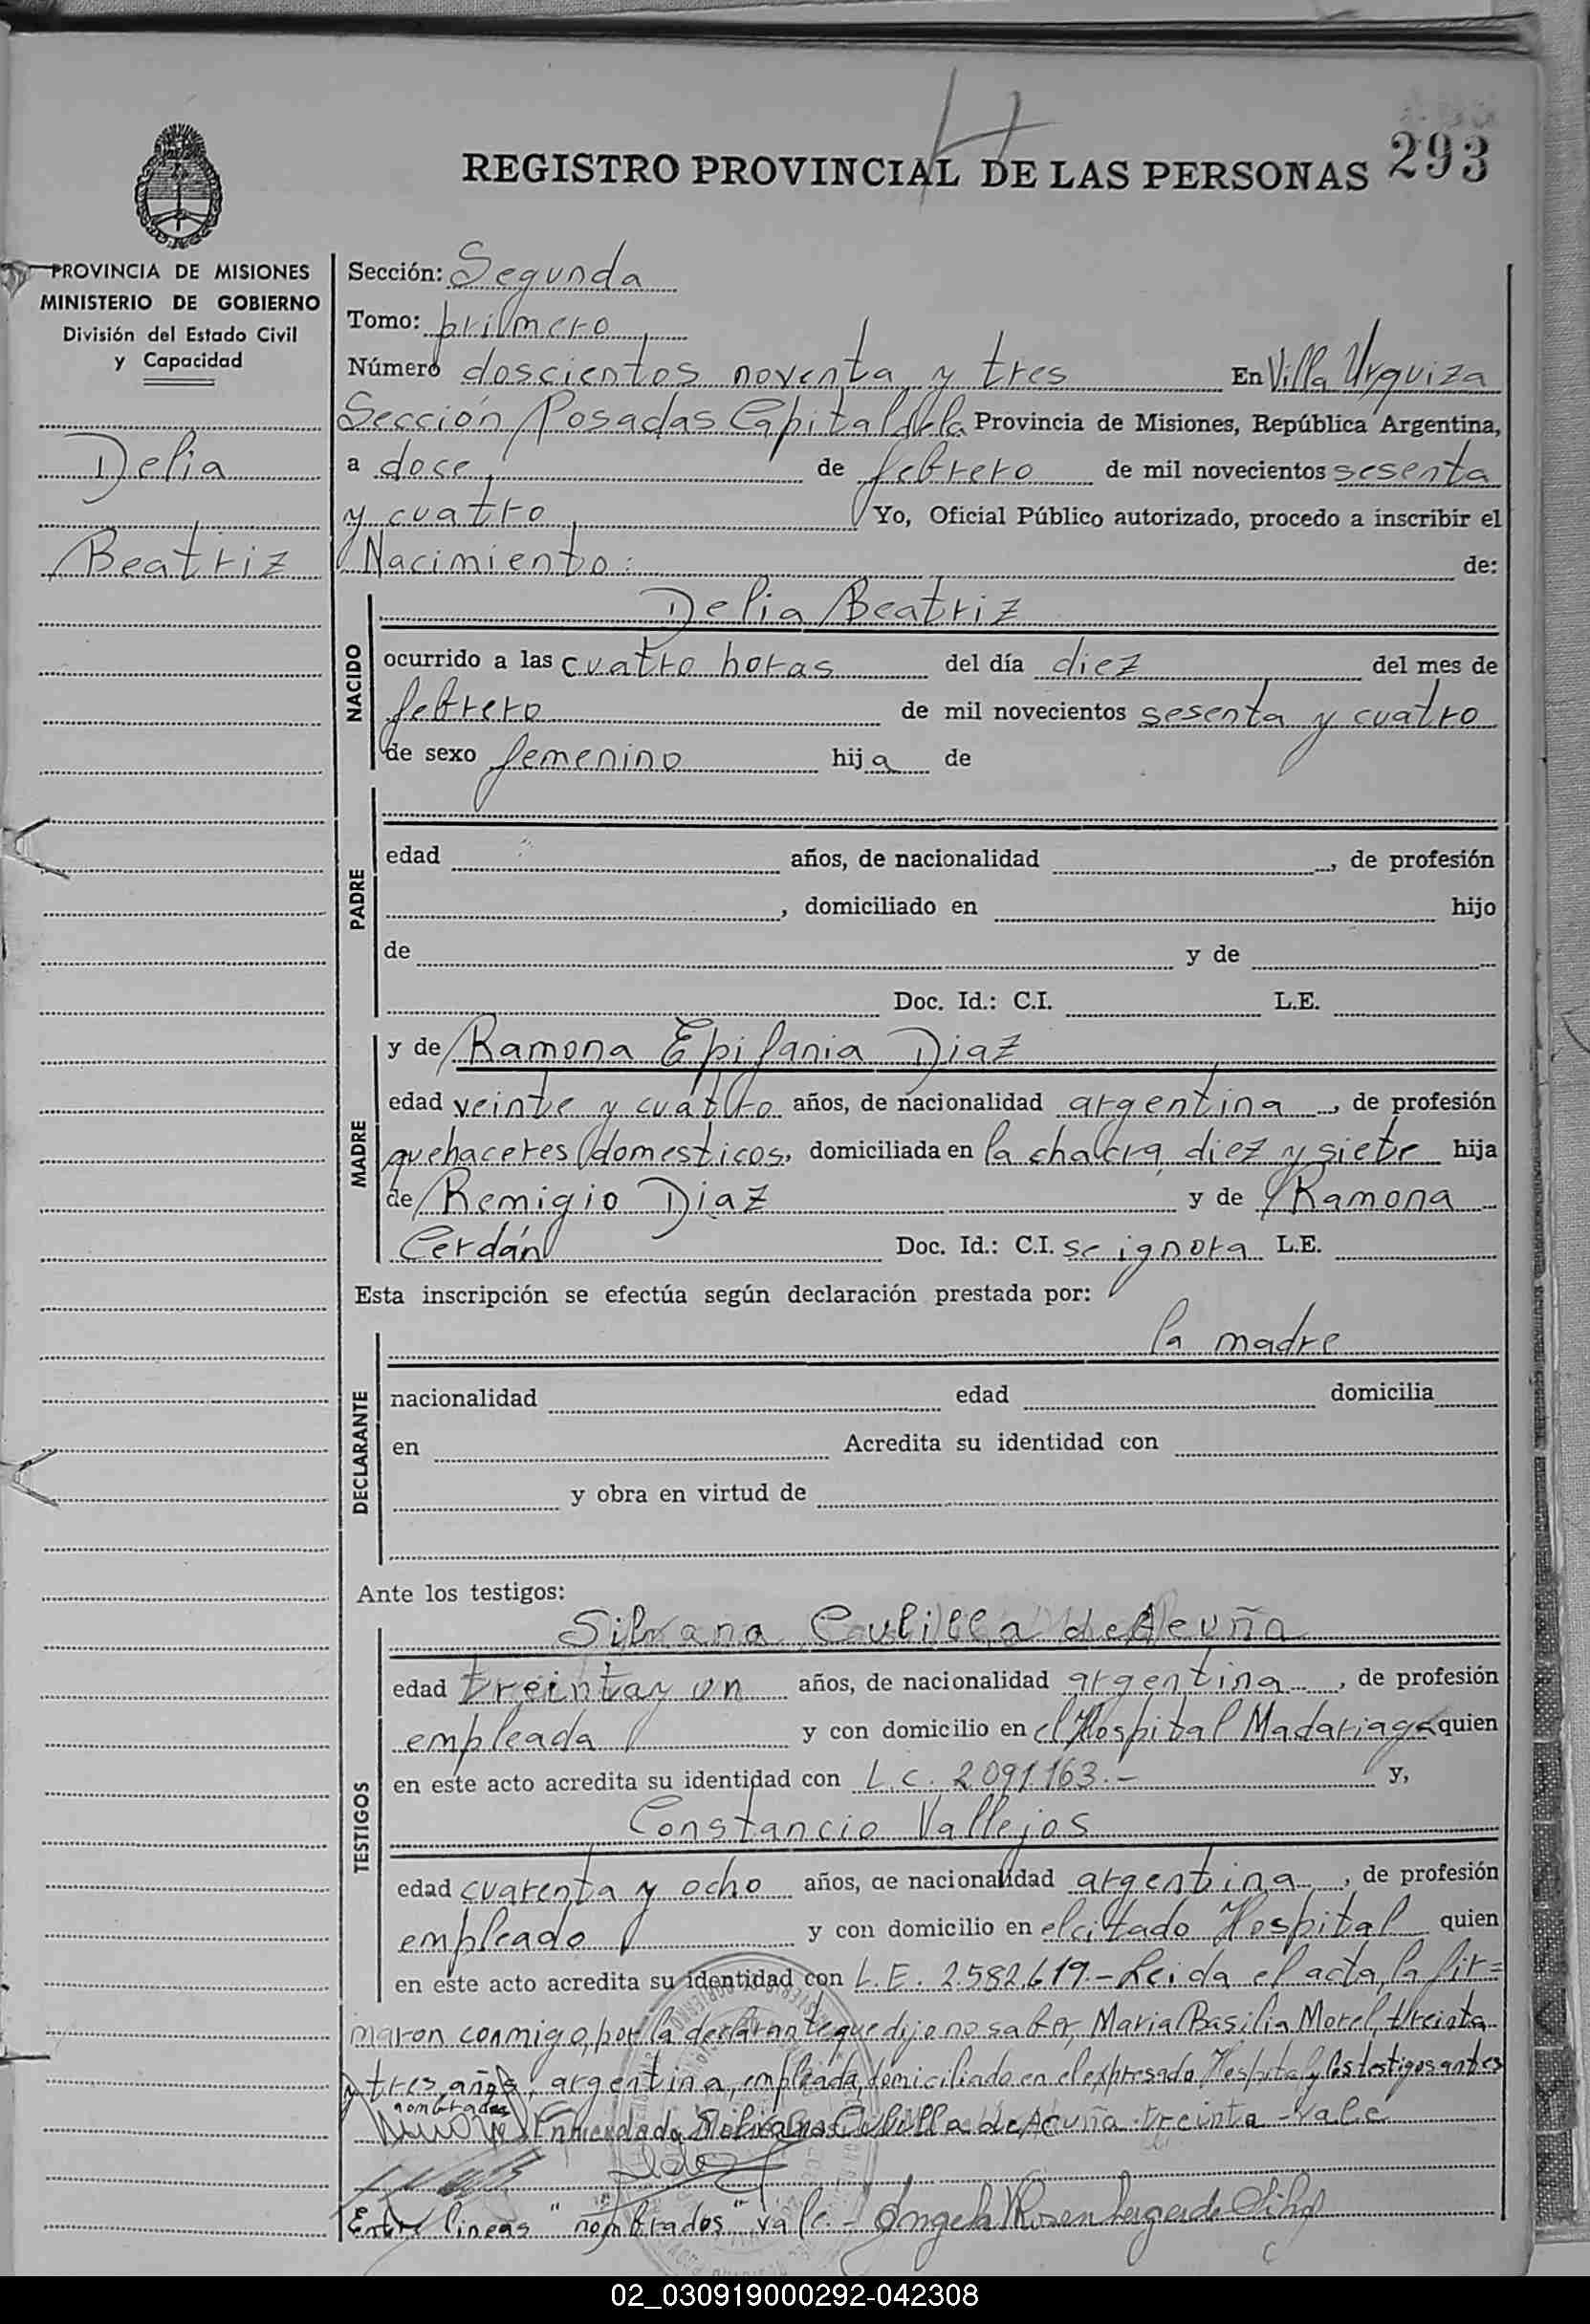 REGISTRO PROVINCIAL DE LAS PERSONAS 293
PROVINCIA DE MISIONES
MINISTERIO DE GOBIERNO
División del Estado Civil
y Capacidad
Delia
Beatriz
Sección: Segunda
Tomo: primero
Número doscientos noventa y tres En Villa Urquiza
Sección Posadas Capital de la Provincia de Misiones, República Argentina,
a doce de febrero de mil novecientos sesenta
y cuatro Yo, Oficial Público autorizado, procedo a inscribir el
Nacimiento: de:
NACIDO
Delia Beatriz
ocurrido a las cuatro horas del día diez del mes de
febrero de mil novecientos sesenta y cuatro
de sexo femenino hija de
PADRE
edad años, de nacionalidad , de profesión
, domiciliado en hijo
de y de
Doc. Id.: C.I. L.E.
MADRE
y de Ramona Epifania Diaz
edad veinte y cuatro años, de nacionalidad argentina , de profesión
quehaceres domesticos, domiciliada en la chacra diez y siete hija
de Remigio Diaz y de Ramona
Cerdán Doc. Id.: C.I. se ignora L.E.
Esta inscripción se efectúa según declaración prestada por:
DECLARANTE
la madre
nacionalidad edad domicilia
en Acredita su identidad con
y obra en virtud de
Ante los testigos:
TESTIGOS
Silvana Cubilla de Acuña
edad treinta y un años, de nacionalidad argentina , de profesión
empleada y con domicilio en el Hospital Madariaga quien
en este acto acredita su identidad con L.C. 2091163.- y,
Constancio Vallejos
edad cuarenta y ocho años, de nacionalidad argentina , de profesión
empleado y con domicilio en el citado Hospital quien
en este acto acredita su identidad con L.E. 2.582.619.- Leida el acta, la fir=
maron conmigo, por la declarante que dijo no saber, Maria Basilia Morel, treinta
y tres años, argentina, empleada, domiciliada en el expresado Hospital y los testigos antes
nombrados
Enmendada Silvana Cubilla de Acuña treinta - vale
Entre lineas "nombrados" vale -
02_030919000292-042308